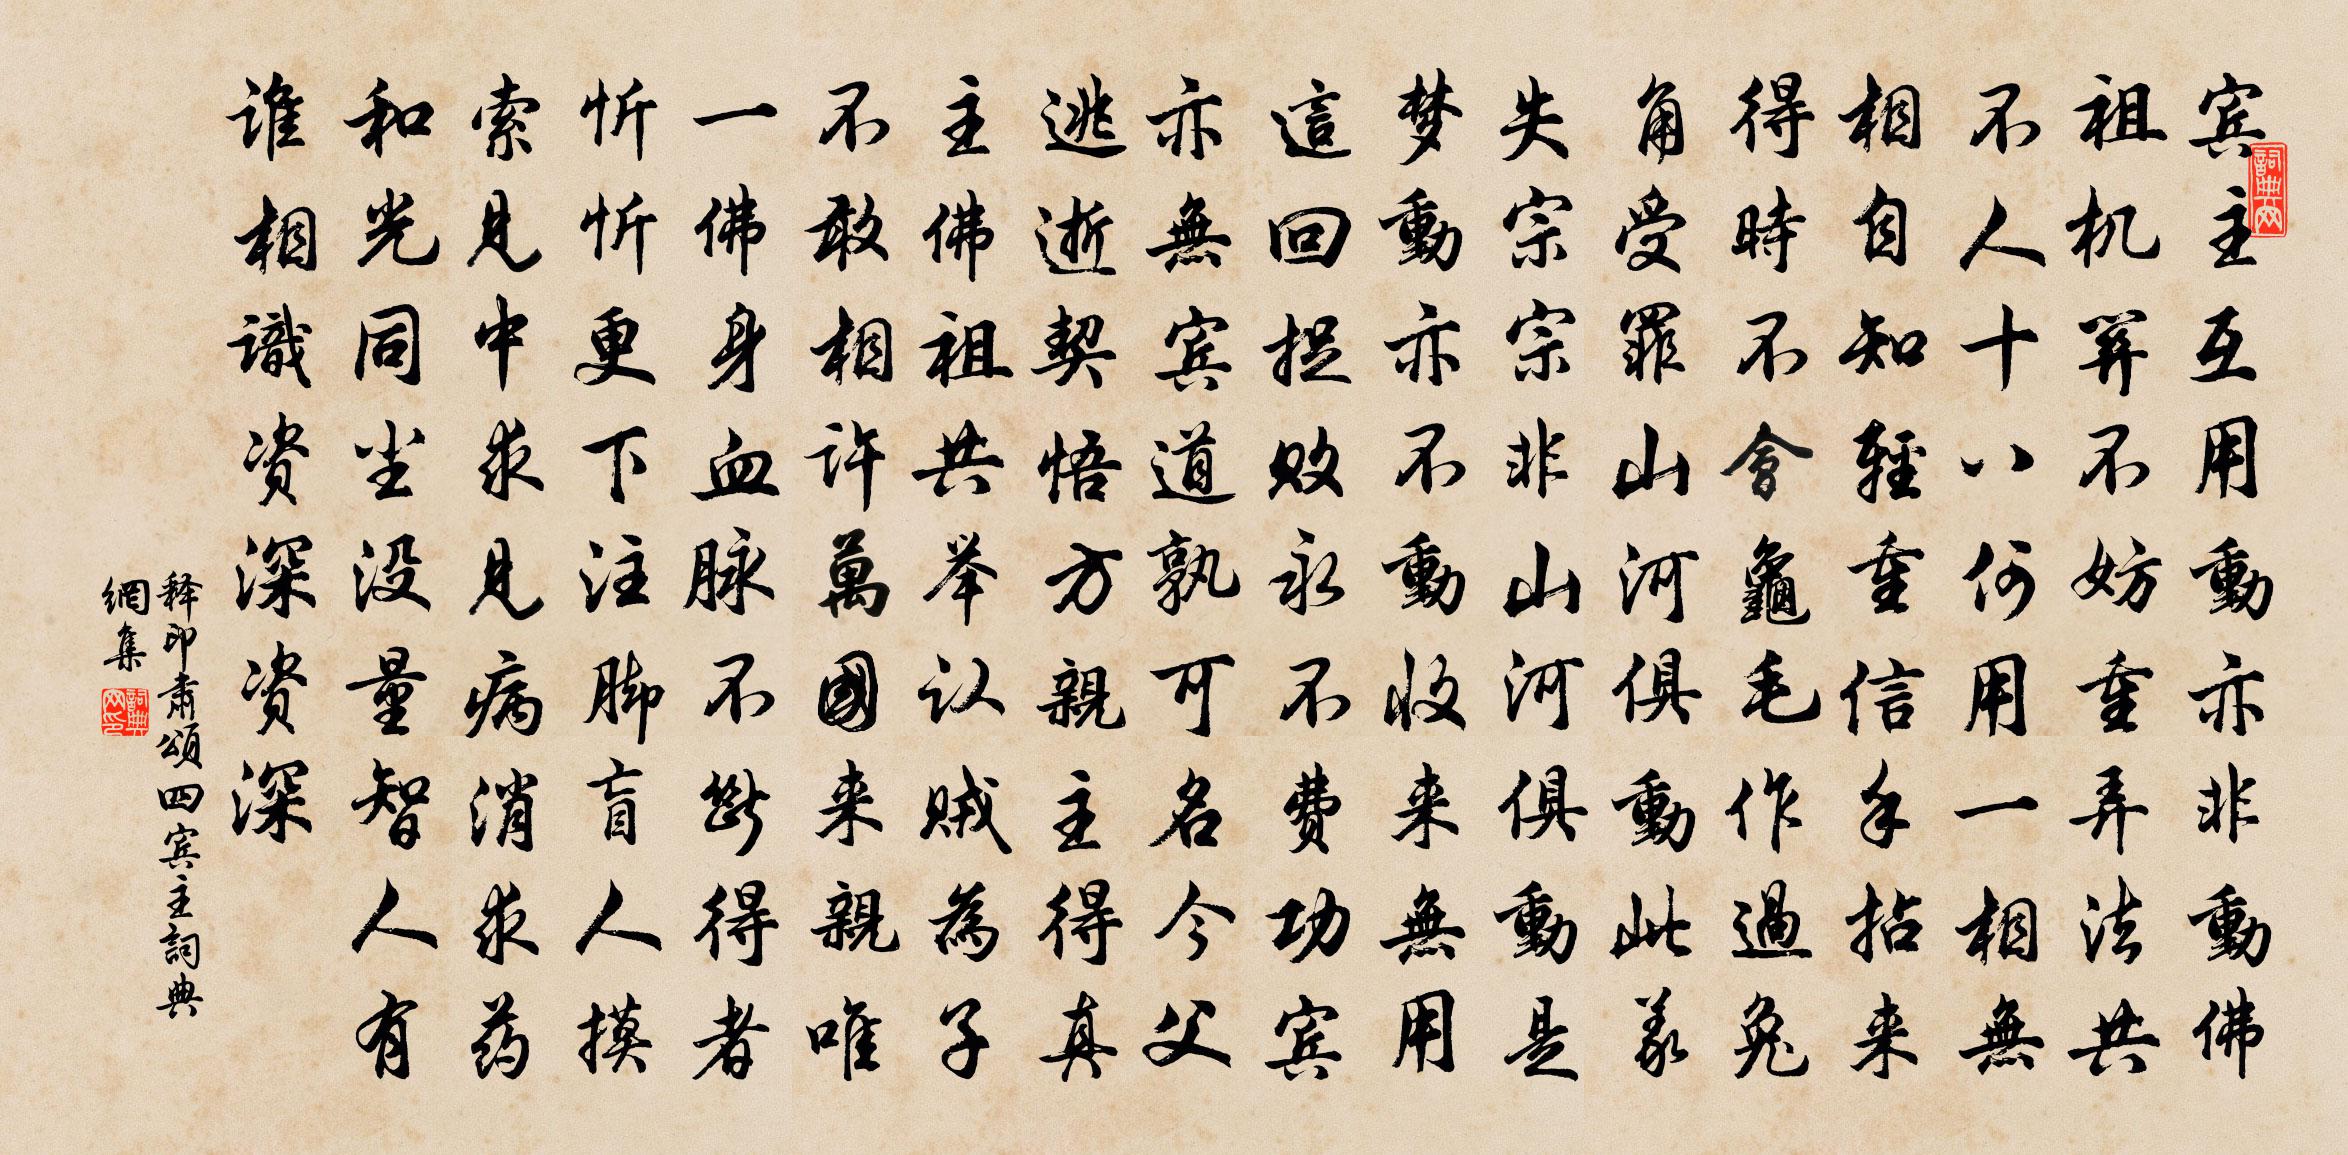 宾主互用動亦非動佛
祖机算不妨重弄法共
不人十八何用一相無
相自知輕重信手拈来
得時不會龜毛作過兔
角受罪山河俱動此義
失宗宗非山河俱動是
梦動亦不動收来無用
這回捉败永不費功宾
亦無宾道孰可名今父
逃逝契悟方親主得真
主佛祖共举认贼為子
不敢相许萬國来親唯
一佛身血脉不斷得者
忻忻更下注脚盲人摸
索見中求見病消求药
和光同尘没量智人有
谁相識资深资深
释印肃頌四宾主詞典
網集
詞典网